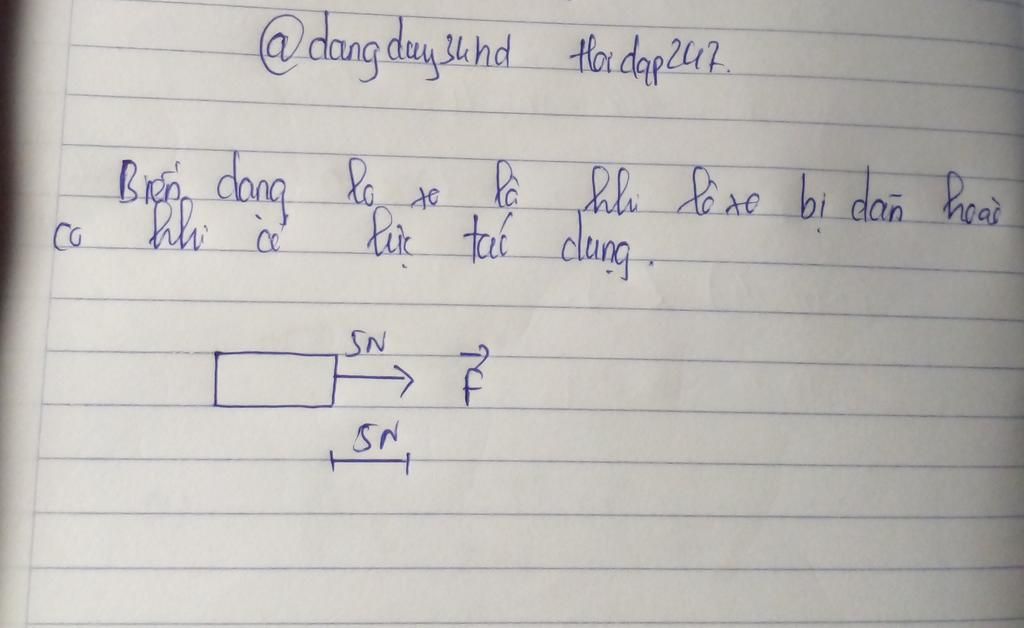 @dangduy34nd Hoidap247.
Biến dạng lo xo là khi lò xo bị dãn hoặc
co khi có lực tác dụng.
5N
F
5N